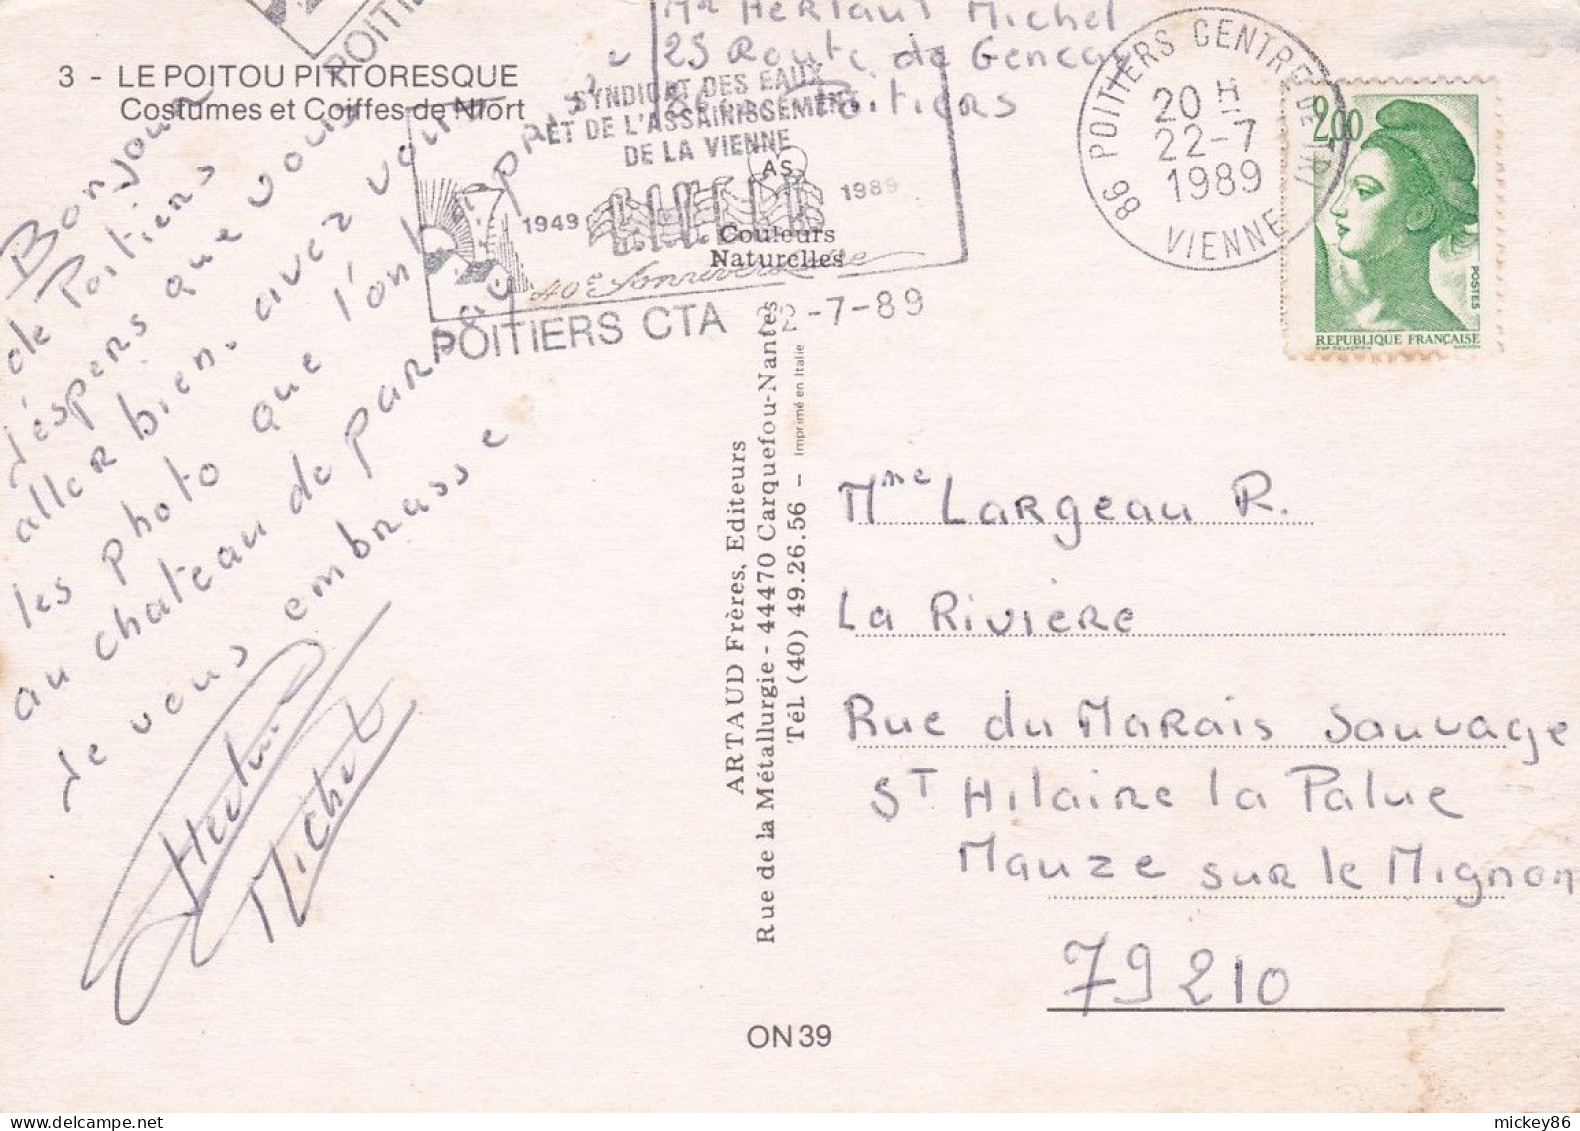 POITIERS
3 - LE POITOU PITTORESQUE
Costumes et Coiffes de Niort
Mr Hertaut Michel
25 Route de Gencay
Poitiers
SYNDICAT DES EAUX
ET DE L'ASSAINISSEMENT
DE LA VIENNE
1949
1989
40e Anniversaire
POITIERS CTA 22-7-89
AS
Couleurs
Naturelles
86 POITIERS CENTRE DE TRI
20 H
22-7
1989
VIENNE
2,00
POSTES
REPUBLIQUE FRANÇAISE
Bonjour
de Poitiers
j'éspers que vous
aller bien. avez vous
les photo que l'on à prise
au chateau de parpau
Je vous embrasse
Michel
ARTAUD Frères, Editeurs
Rue de la Métallurgie - 44470 Carquefou-Nantes
Tél. (40) 49.26.56 - Imprimé en Italie
Mme Largeau R.
La Rivière
Rue du Marais Sauvage
ST Hilaire la Palue
Mauze sur le Mignon
79210
ON 39
mickey86